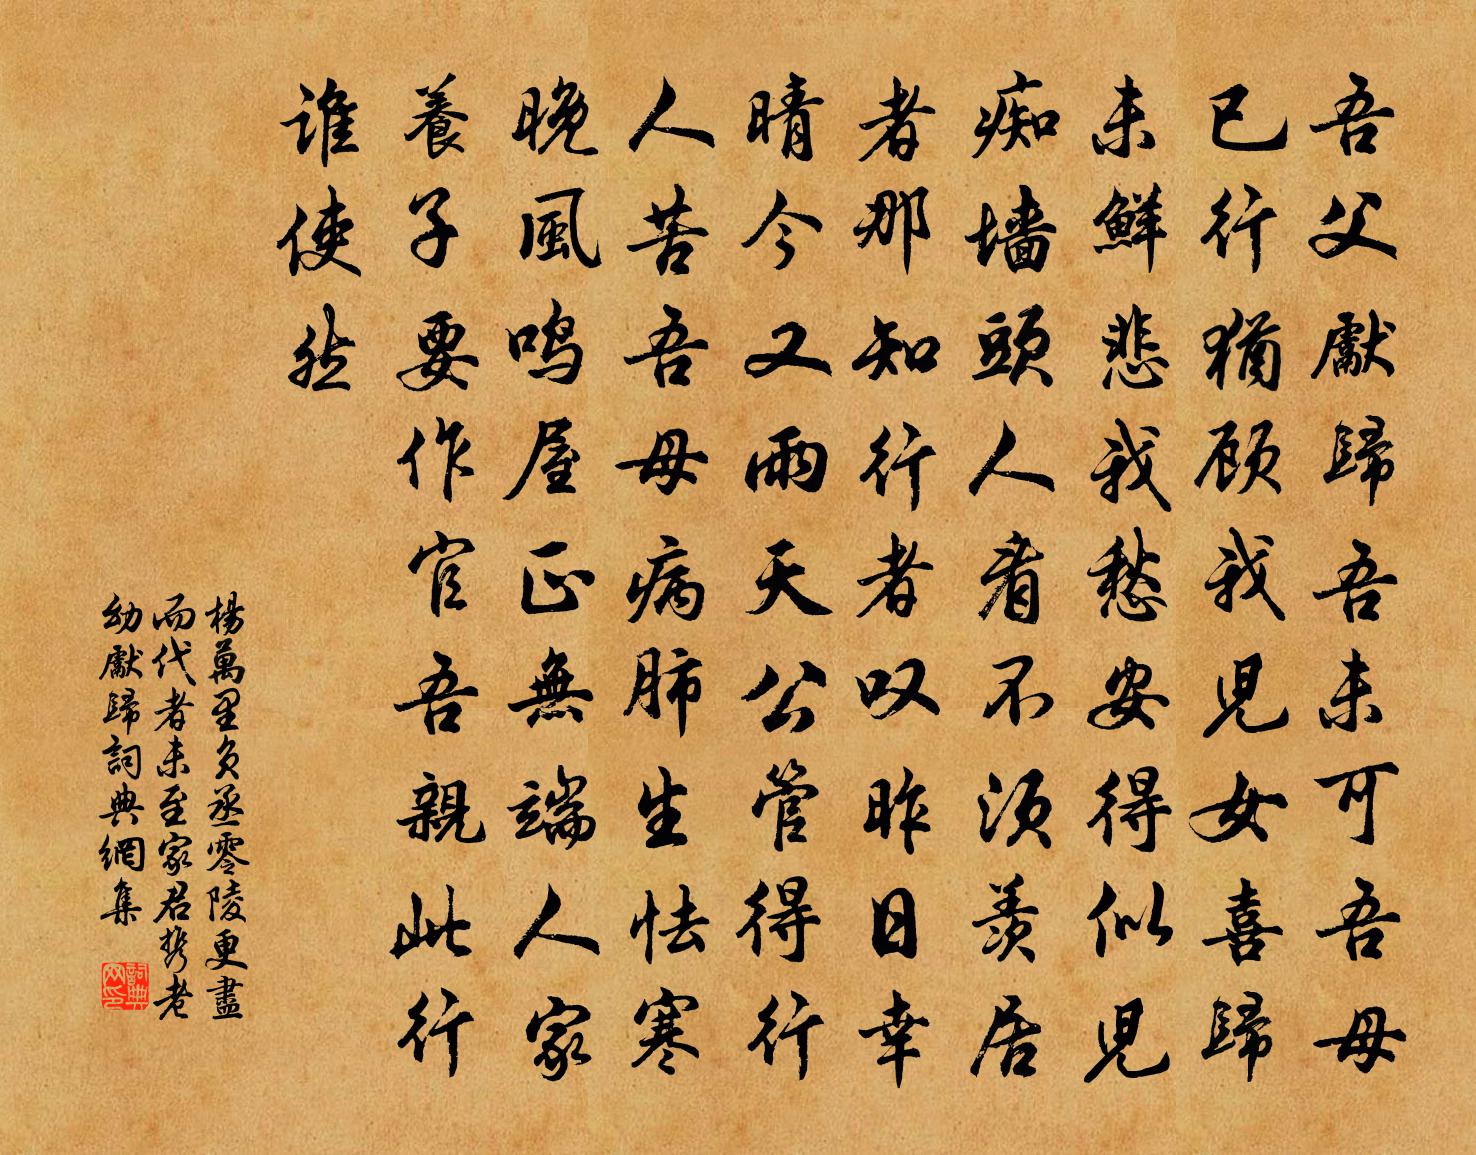 吾父獻歸吾未可吾母
已行猶顾我児女喜歸
未鮮悲我愁安得似児
痴墙頭人看不须羡居
者那知行者叹昨日幸
晴今又雨天公管得行
人苦吾母病肺生怯寒
晚風鸣屋正無端人家
養子要作官吾親此行
谁使然
楊萬里负丞零陵更盡
而代者未至家君携老
幼獻歸詞典網集
詞典
网印